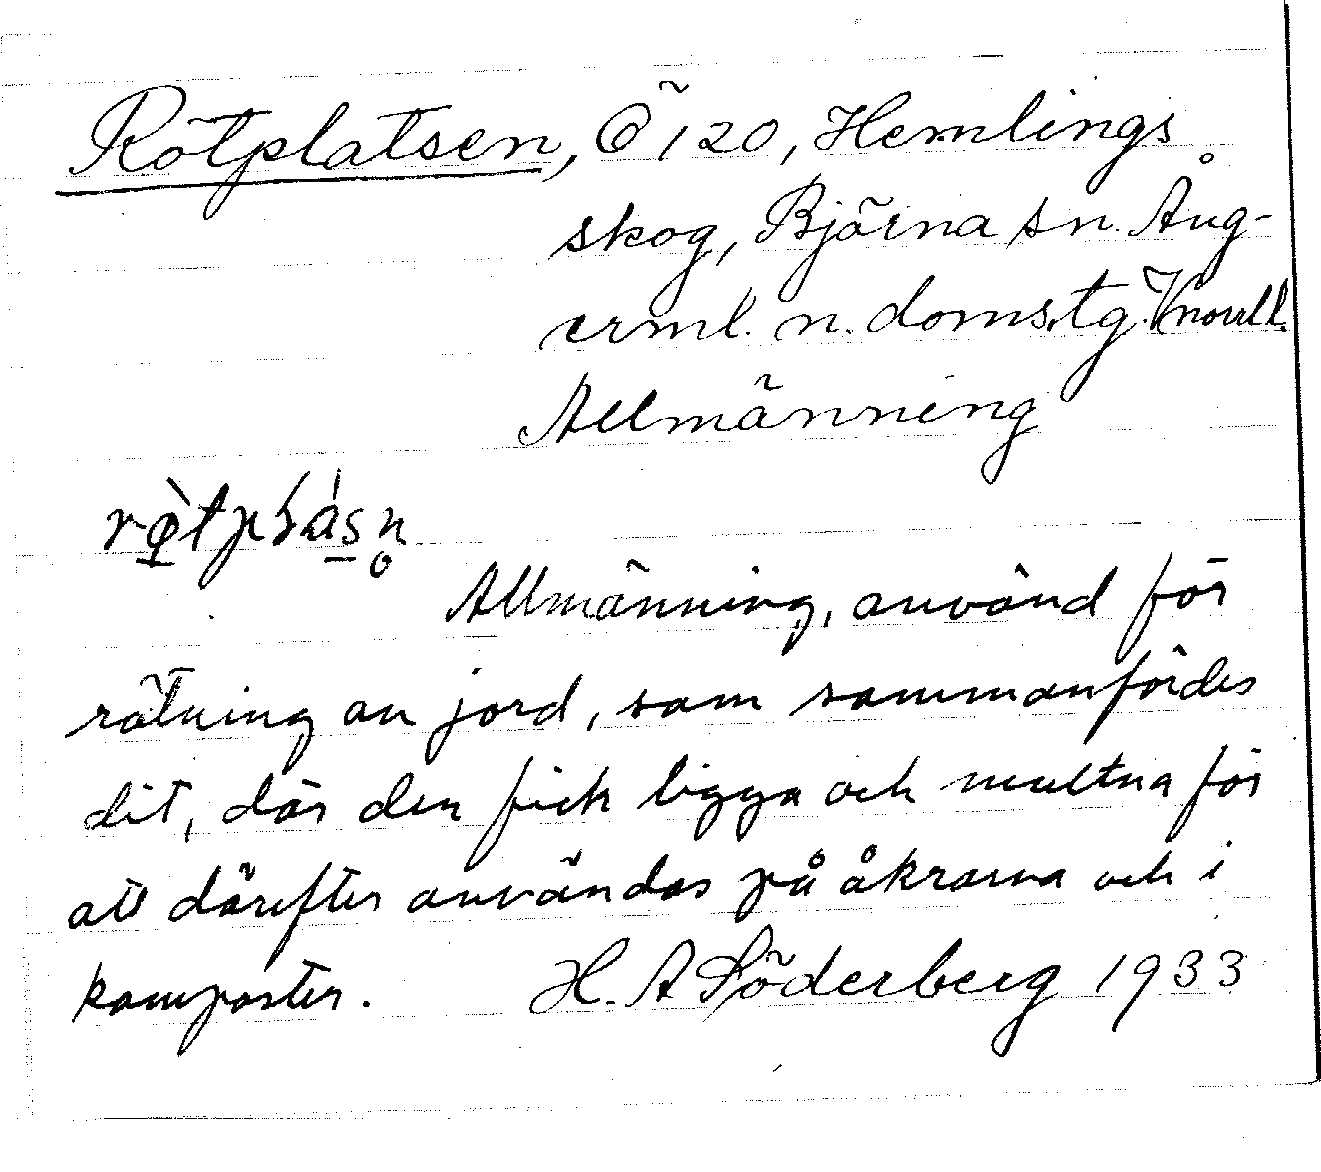 Rötplatsen, Ö 120, Hemlings
skog, Björna sn. Ång-
erml. n. domstg. Vnorrl.
Allmänning
Allmänning, använd för
rötning av jord, som sammanfördes
dit, där den fick ligga och multna för
att därefter användas på åkrarna och i
komposter. H. A Söderberg 1933